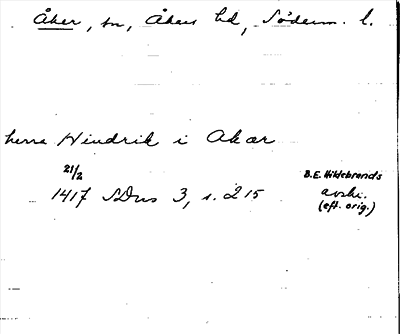 Åker, sn, Åkers hd, Söderm. l.
herre Hindrik i Akær
21/2
1417 SDns 3, s. 215
B.E. Hildebrands
avskr.
(eft. orig.)